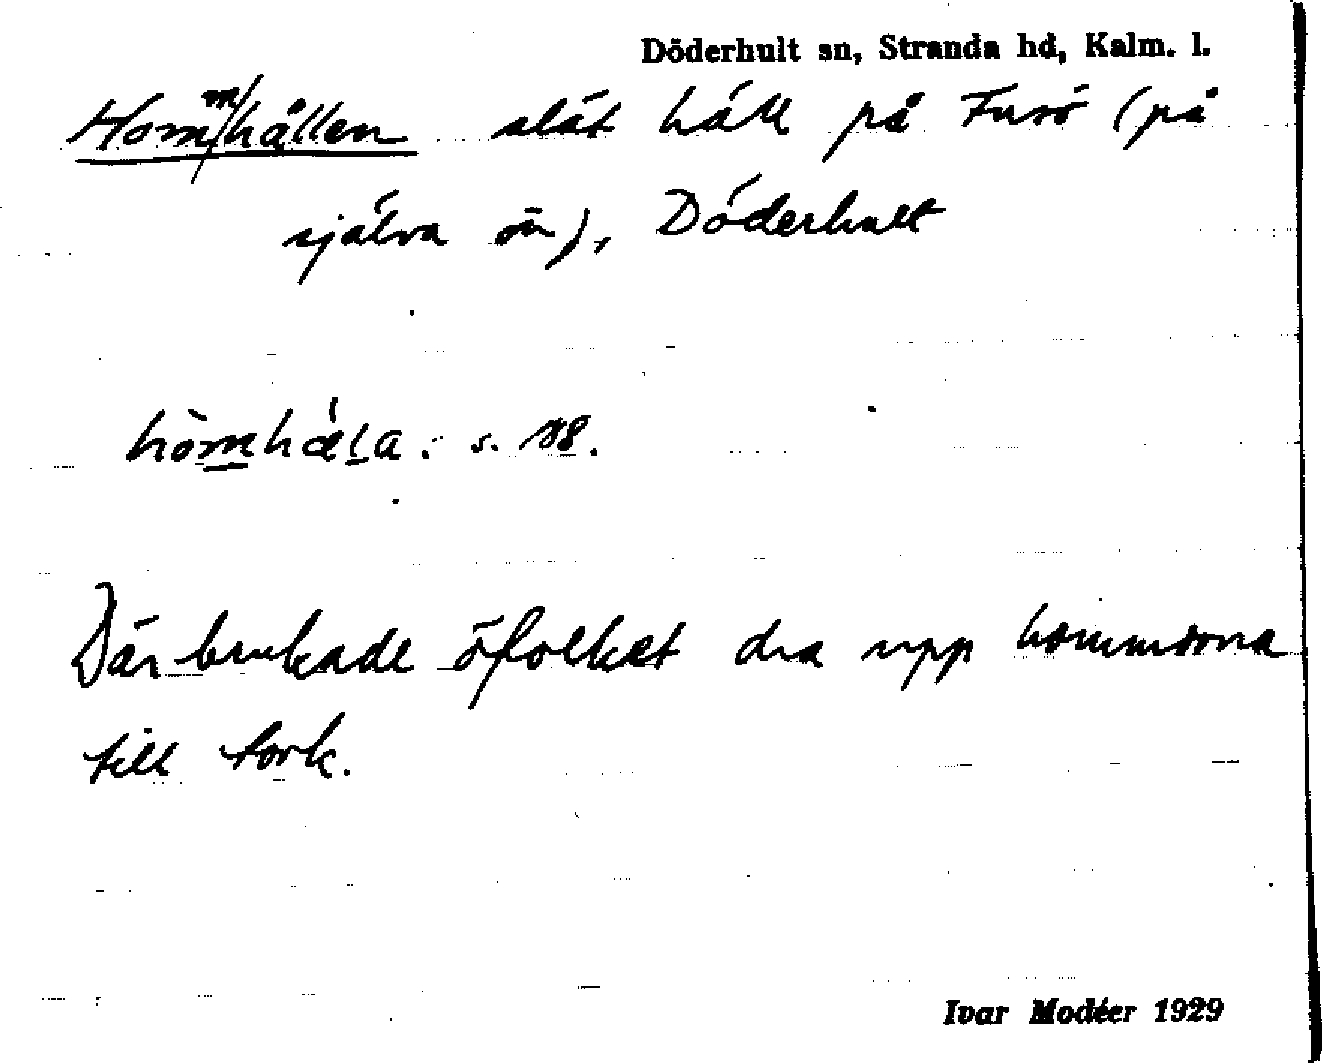 Döderhult sn, Stranda hd, Kalm. l.
Hommhällen slät häll på Furö (på
själva ön), Döderhult
hòm̲hǽl̲a. s. 88.
Där brukade öfolket dra upp hommorna
till tork.
Ivar Modéer 1929